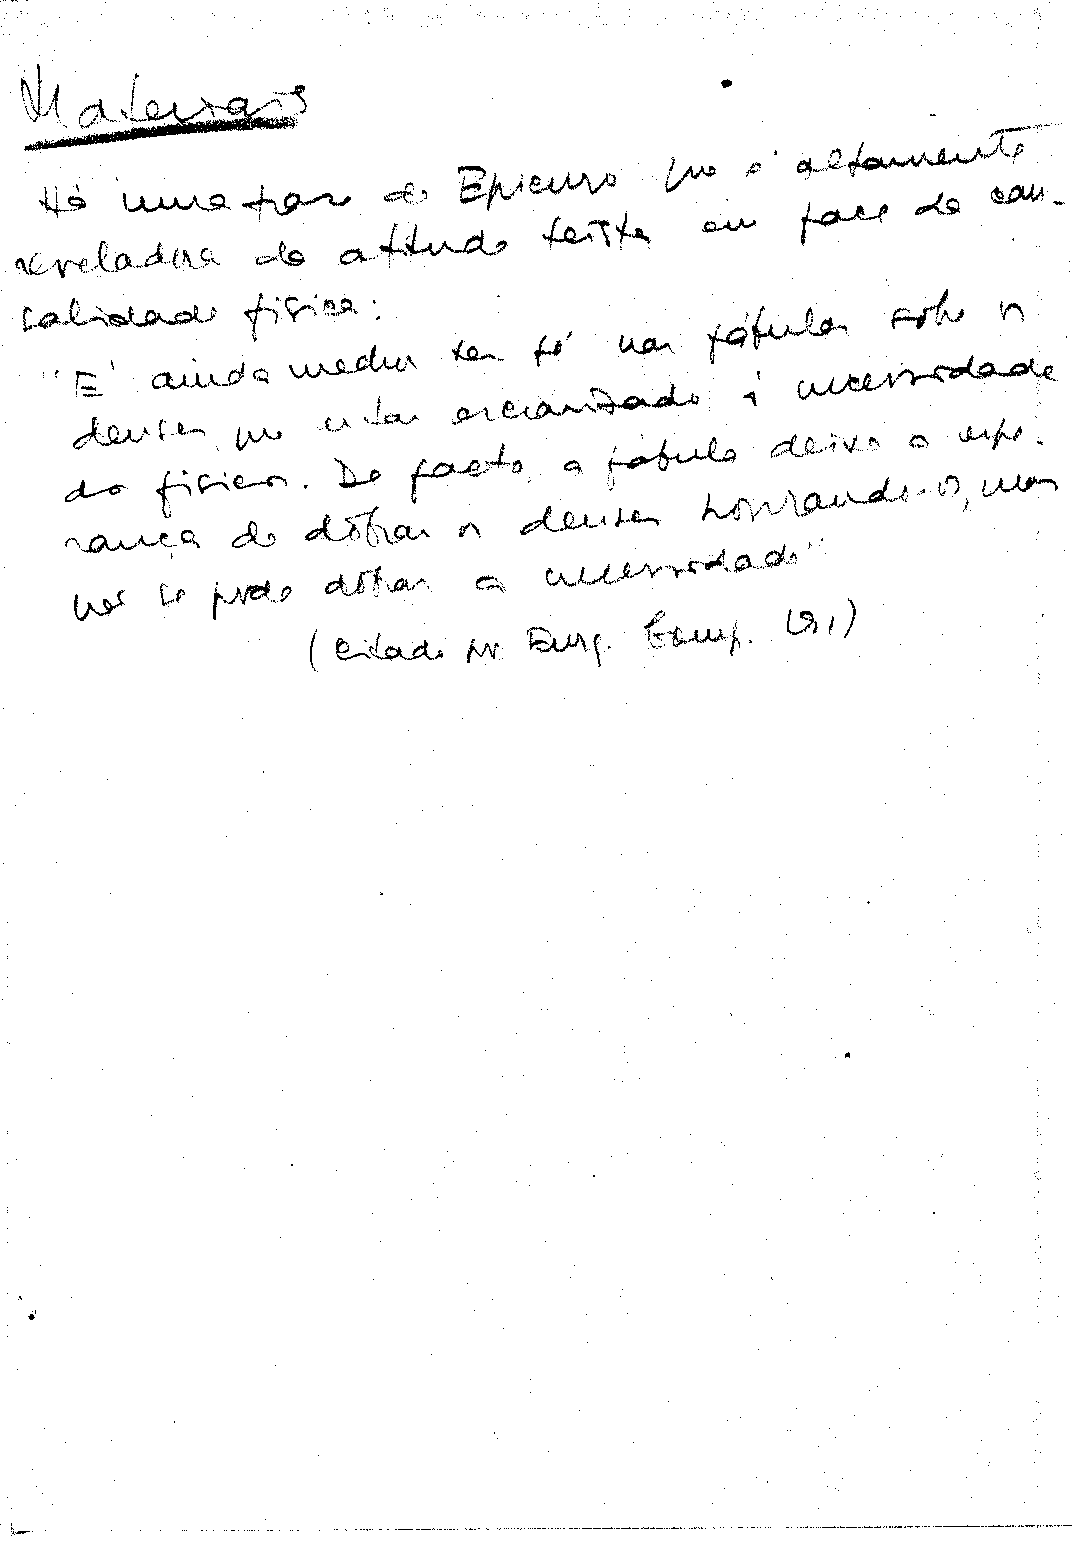 Materiais
Há uma frase de Epicuro que é altamente
reveladora da atitude teísta em face da cau-
salidade física:
"É ainda melhor ter fé nas fábulas sobre os
deuses que estar escravizado à necessidade
dos físicos. De facto, a fábula deixa a espe-
rança de dobrar os deuses honrando-os, mas
não se pode dobrar a necessidade"
(citado por Comp.